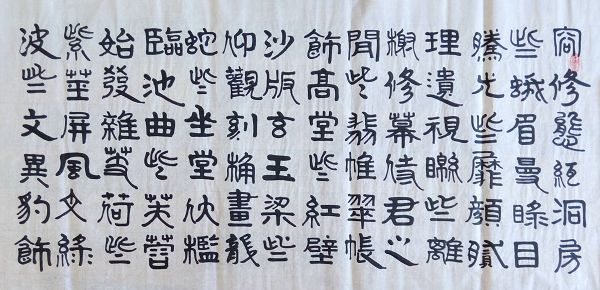 容修態絙洞房
些蛾眉曼睩目
騰光些靡顏膩
理遺視矊些離
榭修幕侍君之
閒些翡帷翠帳
飾高堂些紅壁
沙版玄玉梁些
仰觀刻桷畫龍
蛇些坐堂伏檻
臨池曲些芙蓉
始發雜芰荷些
紫莖屏風文綠
波些文異豹飾